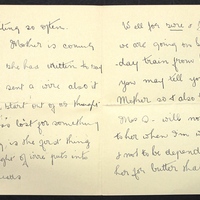 ting so often.
Mother is coming
she has written to say
sent a wire also it
start "out of os thought"
is lost for something
is the first thing
ght of wire puts into
Well for sure &
we are going on
day train from
you may tell yo
Mother so & also
Mrs D. will no
to her when I'm
& not to be depend
her for butter that